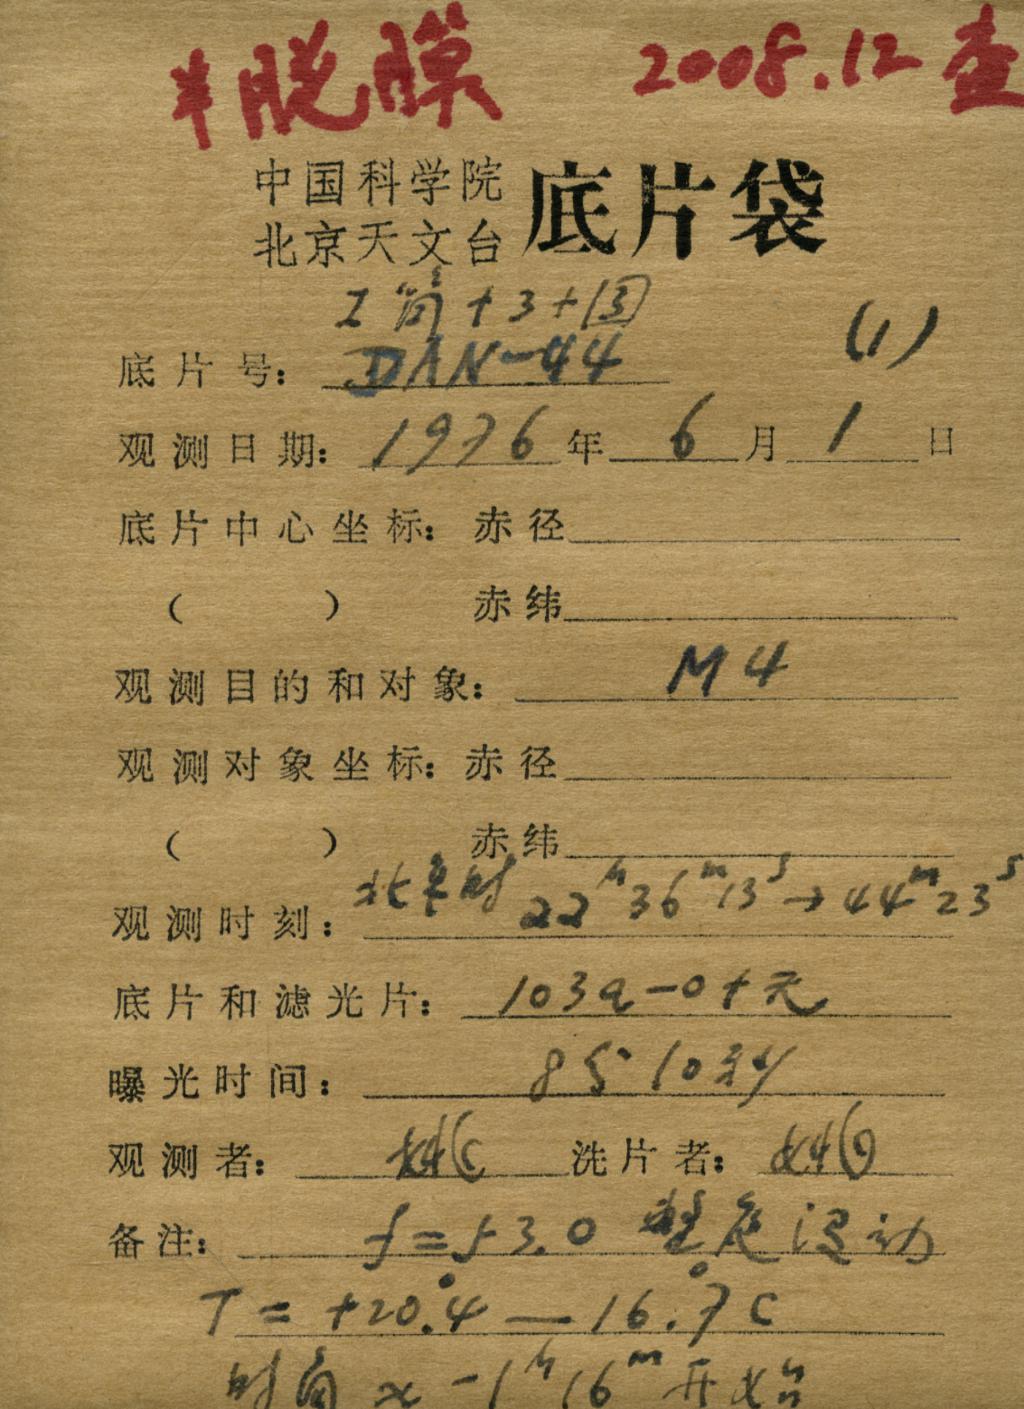 半脱膜 2008.12查
中国科学院
北京天文台 底片袋
I 筒 + 3 +
底片号: DAN-44 (1)
观测日期: 1976 年 6 月 1 日
底片中心坐标: 赤径
( ) 赤纬
观测目的和对象: M4
观测对象坐标: 赤径
( ) 赤纬
观测时刻: 北京时 22h36m13s→44m23s
底片和滤光片: 103a-0+无
曝光时间: 8分10秒
观测者: 洗片者:
备注: f=53.0 没动
T = +20°.4 — 16°.7C
时角 -1h16m 开始